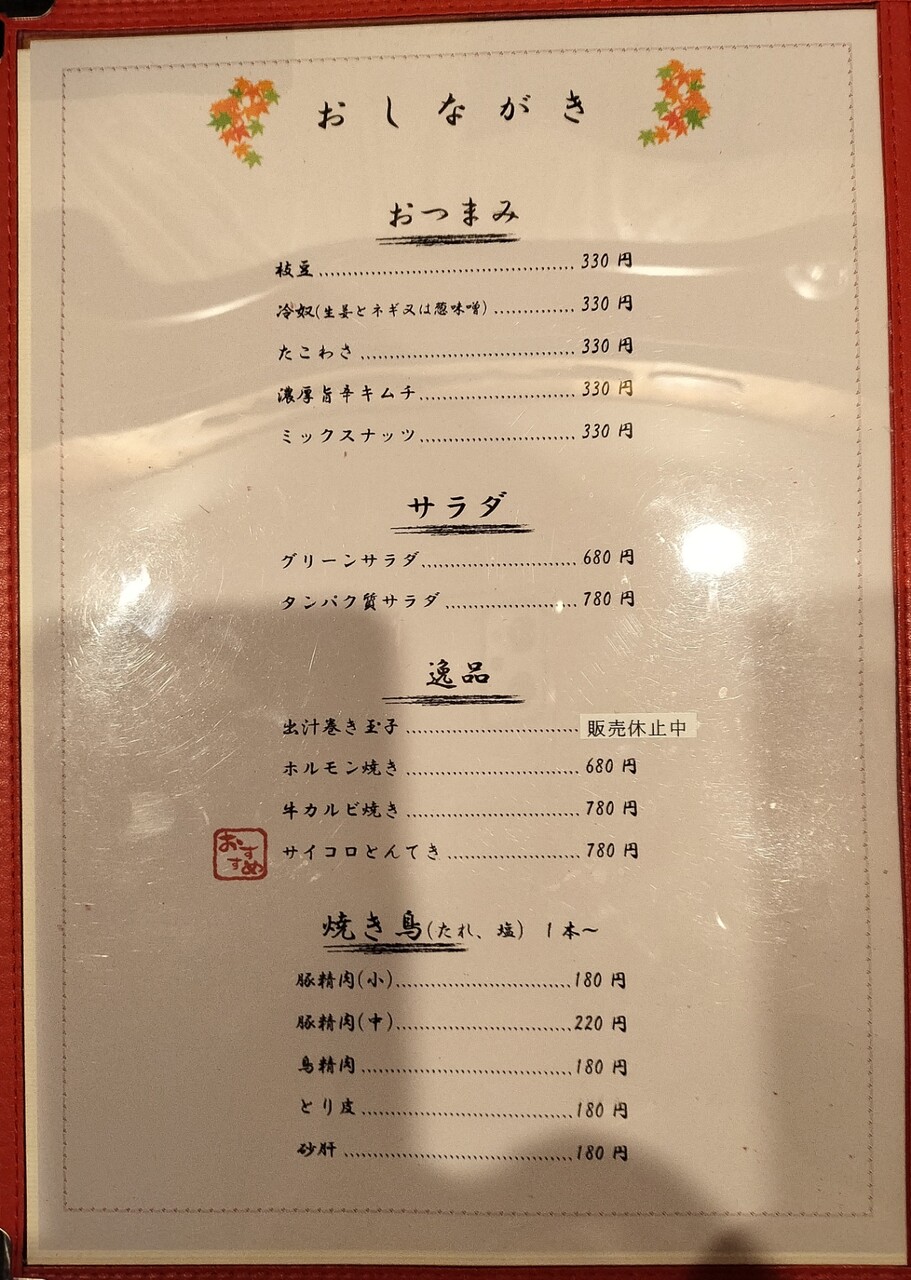 おしながき
おつまみ
枝豆 330 円
冷奴(生姜とネギ又は葱味噌) 330 円
たこわさ 330 円
濃厚旨辛キムチ 330 円
ミックスナッツ 330 円
サラダ
グリーンサラダ 680 円
タンパク質サラダ 780 円
逸品
出汁巻き玉子 販売休止中
ホルモン焼き 680 円
牛カルビ焼き 780 円
おすすめ サイコロとんてき 780 円
焼き鳥(たれ、塩) 1本~
豚精肉(小) 180 円
豚精肉(中) 220 円
鳥精肉 180 円
とり皮 180 円
砂肝 180 円